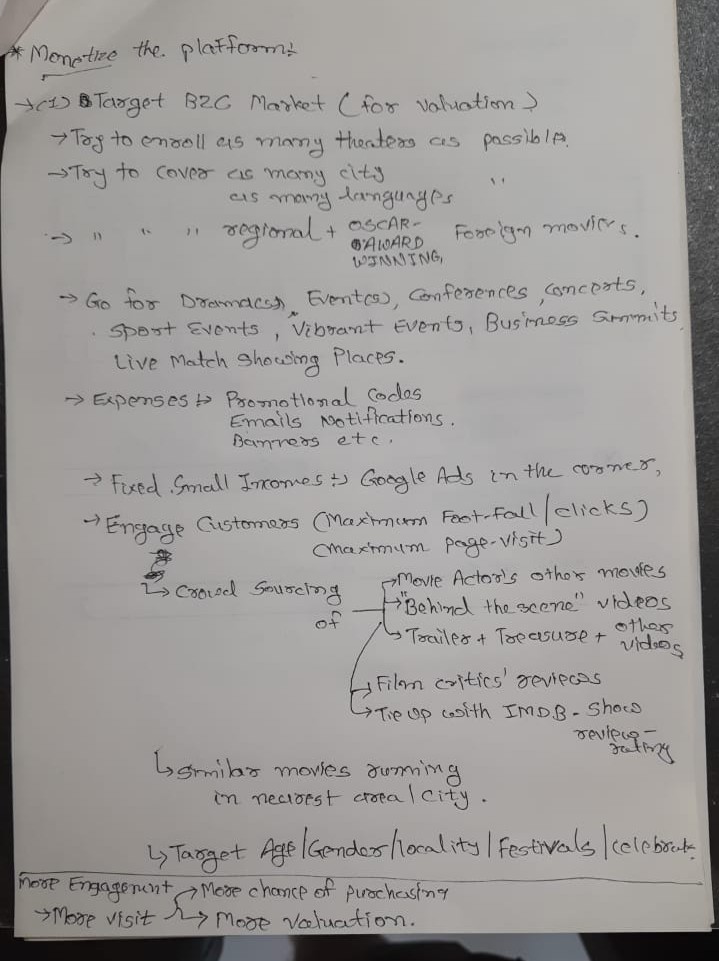 * Monetize the platform:
→ (1) Target B2C Market (for valuation)
→ Try to enroll as many theaters as possible.
→ Try to cover as many city "
as many languages
→ " " " regional + OSCAR- AWARD WINNING, Foreign movies.
→ Go for Dramas(s), Event(s), Conferences, concerts,
Sport Events, Vibrant Events, Business Summits,
Live Match Showing Places.
→ Expenses → Promotional Codes
Emails Notifications.
Banners etc.
→ Fixed Small Incomes → Google Ads in the corner,
→ Engage Customers (Maximum Foot-Fall / clicks)
(Maximum page-visit)
→ Movie Actor's other movies
↳ Croud Sourcing of → "Behind the scene" videos
↳ Trailer + Treasure + other videos
↳ Film critics' reviews
↳ Tie up with IMDB - Show
review-
rating
↳ similar movies running
in nearest area / City.
↳ Target Age / Gender / locality / Festivals / celebrat.
More Engagement → More chance of purchasing
→ More visit → More valuation.